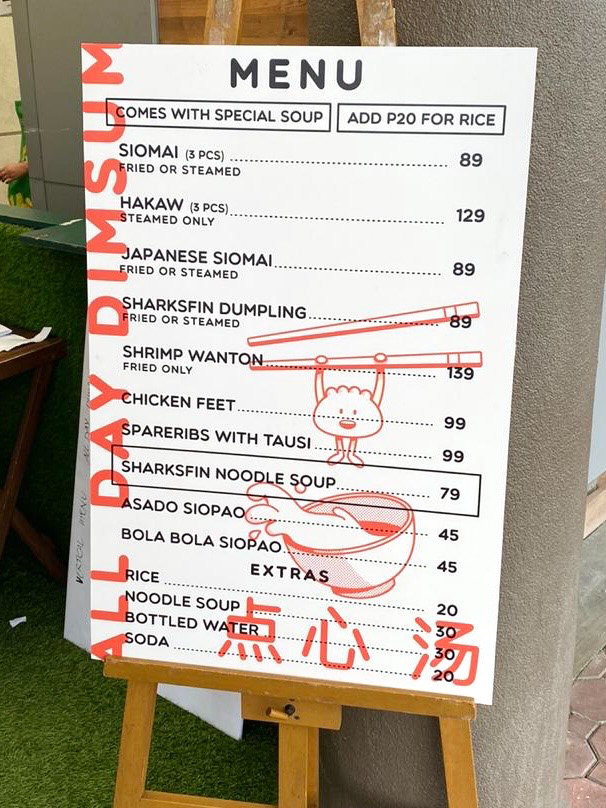 MENU
COMES WITH SPECIAL SOUP
ADD P20 FOR RICE
ALL DAY DIMSUM
SIOMAI (3 PCS) 89
FRIED OR STEAMED
HAKAW (3 PCS) 129
STEAMED ONLY
JAPANESE SIOMAI 89
FRIED OR STEAMED
SHARKSFIN DUMPLING 89
FRIED OR STEAMED
SHRIMP WANTON 139
FRIED ONLY
CHICKEN FEET 99
SPARERIBS WITH TAUSI 99
SHARKSFIN NOODLE SOUP 79
ASADO SIOPAO 45
BOLA BOLA SIOPAO 45
EXTRAS
RICE 20
NOODLE SOUP 30
BOTTLED WATER 30
SODA 20
点心 汤